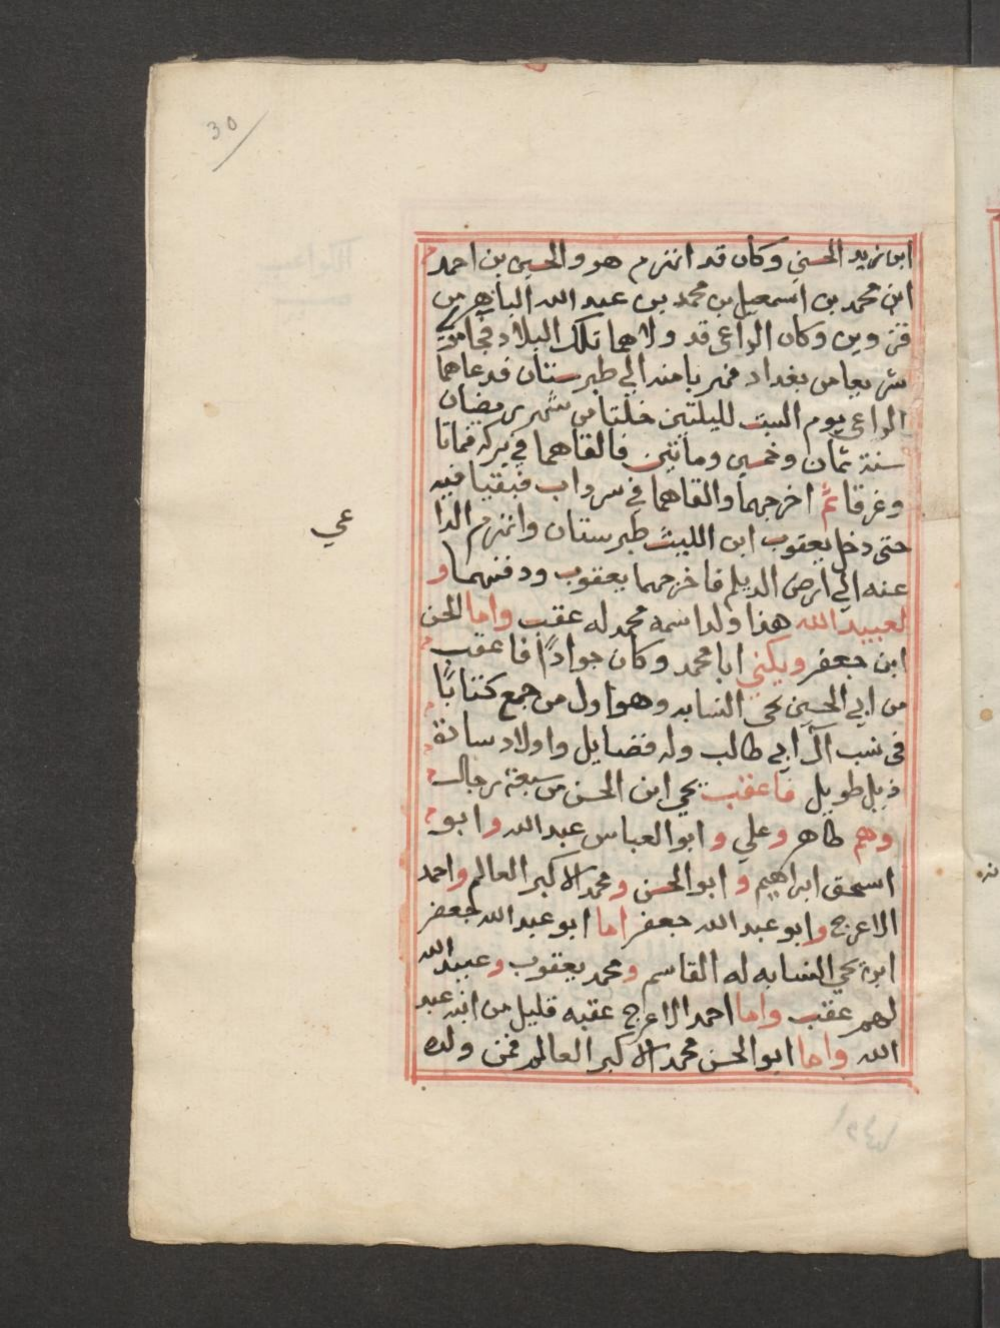 30
ابن زيد الحسني وكان قد انهزم هو والحسين بن احمد
ابن محمد بن اسمعيل بن محمد بن عبد الله الباهر من
قزوين وكان الداعي قد ولاهما تلك البلاد فجا موسى
سريعا من بغداد فهربا منه الي طبرستان فدعاهما
الداعي يوم السبت لليلتين خلتا من شهر رمضان
سنة ثمان وخمسين ومائتين فالقاهما في بركة فماتا
وغرقا ثم اخرجهما والقاهما في سرداب فبقيا فيه
حتى دخل يعقوب ابن الليث طبرستان وانهزم الدا
عي
عنه الي ارض الديلم فاخرجهما يعقوب ودفنهما و
لعبيد الله هذا ولد اسمه محمد له عقب واما الحسن
ابن جعفر ويكني ابا محمد وكان جوادًا فاعقب
من ابي الحسين يحي النسابه وهو اول من جمع كتابًا
في نسب آل ابي طالب وله فضايل واولاد سادة
ذيل طويل فاعقب يحي ابن الحسن من سبعة رجال
وهم طاهر وعلي و ابو العباس عبد الله وابو
اسحق ابراهيم و ابو الحسن ومحمد الاكبر العالم واحمد
الاعرج وابو عبد الله جعفر اما ابو عبد الله جعفر
ابن يحي النسابه له القاسم ومحمد يعقوب وعبيد الله
لهم عقب واما احمد الاعرج عقبه قليل من ابنه عبد
الله واما ابو الحسن محمد الاكبر العالم فمن ولده